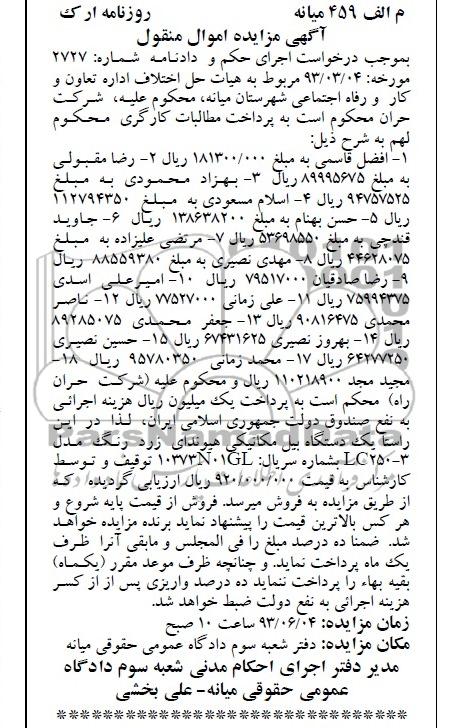 م الف ۴۵۹ میانه روزنامه ارک
آگهی مزایده اموال منقول
بموجب درخواست اجرای حکم و دادنامه شماره: ۲۷۲۷
مورخه: ۹۳/۰۳/۰۴ مربوط به هیات حل اختلاف اداره تعاون و
کار و رفاه اجتماعی شهرستان میانه، محکوم علیه، شرکت
حران محکوم است به پرداخت مطالبات کارگری محکوم
لهم به شرح ذیل:
۱- افضل قاسمی به مبلغ ۱۸۱۳۰۰/۰۰۰ ریال ۲- رضا مقبولی
به مبلغ ۸۹۹۹۵۶۷۵ ریال ۳- بهزاد محمودی به مبلغ
۹۴۷۵۷۵۲۵ ریال ۴- اسلام مسعودی به مبلغ ۱۱۲۷۹۴۳۵۰
ریال ۵- حسن بهنام به مبلغ ۱۳۸۶۳۸۲۰۰ ریال ۶- جاوید
قندچی به مبلغ ۵۳۶۹۸۵۵۰ ریال ۷- مرتضی علیزاده به مبلغ
۴۴۶۲۸۰۷۵ ریال ۸- مهدی نصیری به مبلغ ۸۸۵۵۹۳۸۰ ریال
۹- رضا صادقیان ۷۹۵۱۷۰۰۰ ریال ۱۰- امیرعلی اسدی
۷۵۹۹۴۳۷۵ ریال ۱۱- علی زمانی ۷۷۵۲۷۰۰۰ ریال ۱۲- ناصر
محمدی ۹۰۸۱۶۴۷۵ ریال ۱۳- جعفر محمدی ۸۹۲۸۵۰۷۵
ریال ۱۴- بهروز نصیری ۶۷۴۳۱۶۲۵ ریال ۱۵- حسین نصیری
۶۴۲۷۷۲۵۰ ریال ۱۷- محمد زمانی ۹۵۷۸۰۳۵۰ ریال ۱۸-
مجید مجد ۱۱۰۲۱۸۹۰۰ ریال و محکوم علیه (شرکت حران
راه) محکم است به پرداخت یک میلیون ریال هزینه اجرائی
به نفع صندوق دولت جمهوری اسلامی ایران، لذا در این
راستا یک دستگاه بیل مکانیکی هیوندای زرد رنگ مدل
LC۲۵۰-۳ بشماره سریال: ۱۰۳۷۳N۰۱GL توقیف و توسط
کارشناس به قیمت ۹۲۰/۰۰۰/۰۰۰ ریال ارزیابی گردیده که
از طریق مزایده به فروش میرسد. فروش از قیمت پایه شروع و
هر کس بالاترین قیمت را پیشنهاد نماید برنده مزایده خواهد
شد. ضمنا ده درصد مبلغ را فی المجلس و مابقی آنرا ظرف
یک ماه پرداخت نماید. و چنانچه ظرف موعد مقرر (یکماه)
بقیه بهاء را پرداخت ننماید ده درصد واریزی پس از از کسر
هزینه اجرائی به نفع دولت ضبط خواهد شد.
زمان مزایده: ۹۳/۰۶/۰۴ ساعت ۱۰ صبح
مکان مزایده: دفتر شعبه سوم دادگاه عمومی حقوقی میانه
مدیر دفتر اجرای احکام مدنی شعبه سوم دادگاه
عمومی حقوقی میانه- علی بخشی